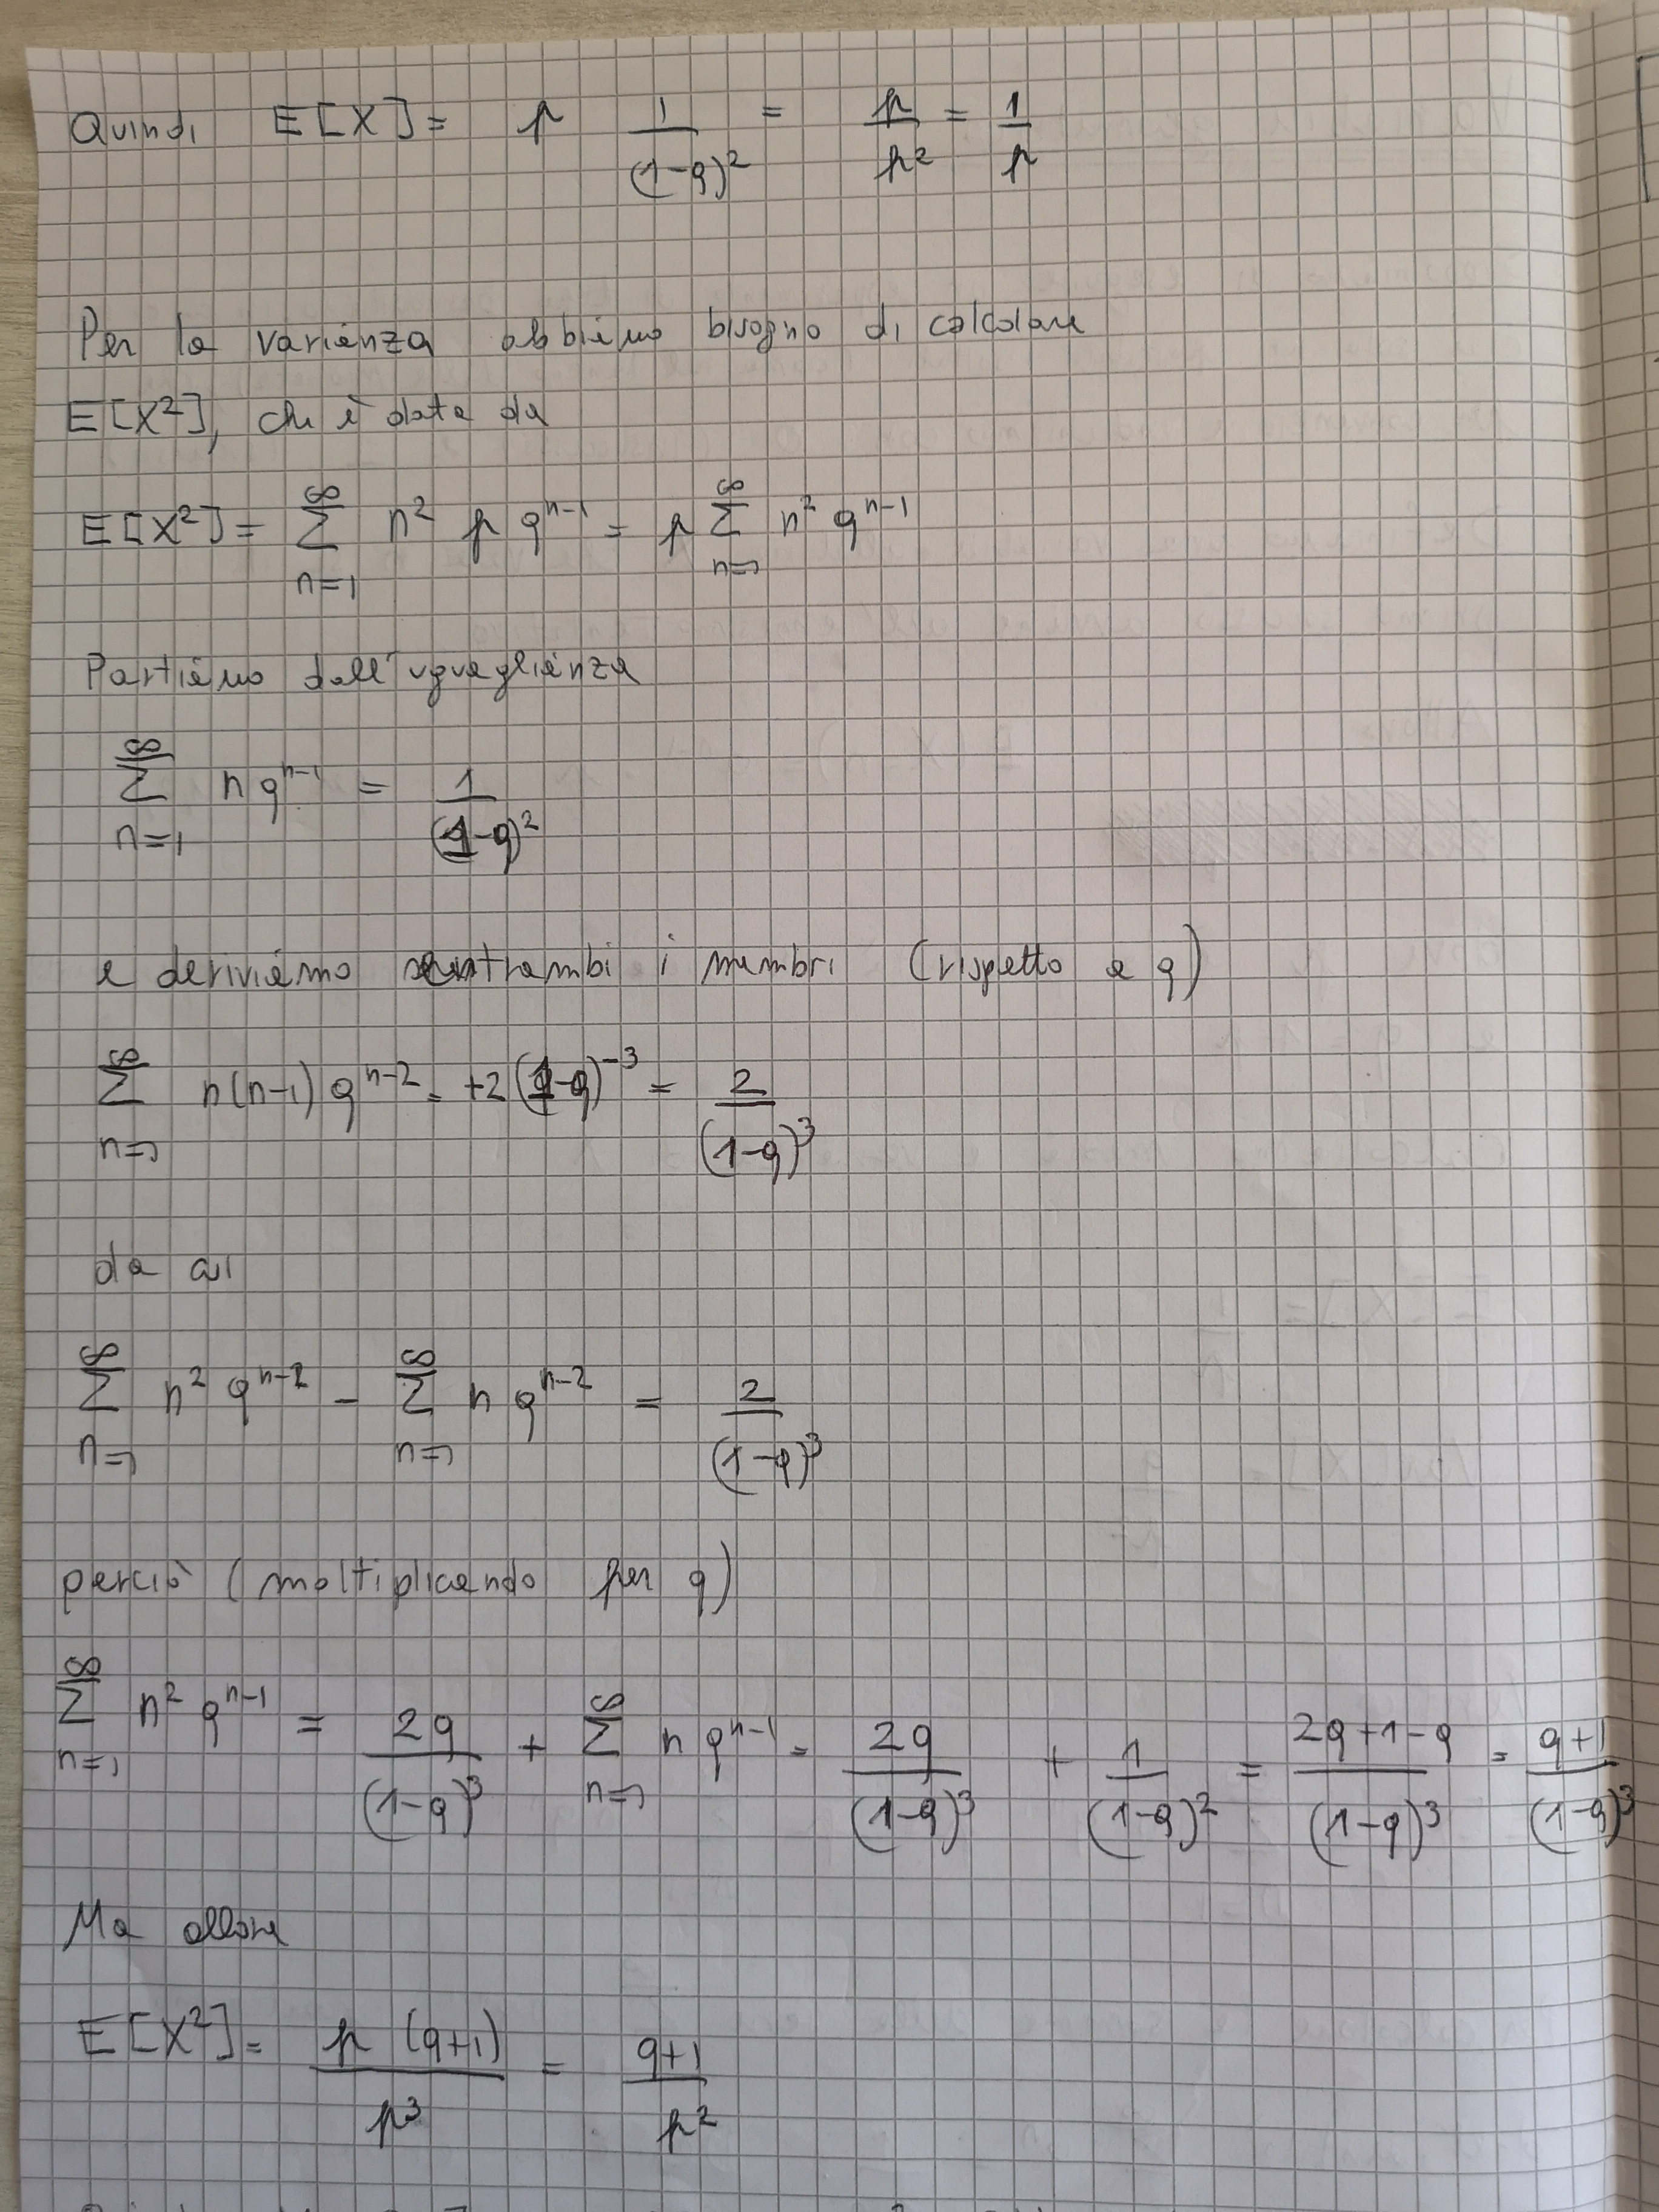 Quindi E[X] = p 1/(1-q)² = p/p² = 1/p
Per la varianza abbiamo bisogno di calcolare
E[X²], che è data da
E[X²] = ∑_{n=1}^{∞} n² p q^{n-1} = p ∑_{n=1}^{∞} n² q^{n-1}
Partiamo dall'uguaglianza
∑_{n=1}^{∞} n q^{n-1} = 1/(1-q)²
e deriviamo entrambi i membri (rispetto a q)
∑_{n=1}^{∞} n(n-1) q^{n-2} = +2(1-q)^{-3} = 2/(1-q)³
da cui
∑_{n=1}^{∞} n² q^{n-2} - ∑_{n=1}^{∞} n q^{n-2} = 2/(1-q)³
perciò (moltiplicando per q)
∑_{n=1}^{∞} n² q^{n-1} = 2q/(1-q)³ + ∑_{n=1}^{∞} n q^{n-1} = 2q/(1-q)³ + 1/(1-q)² = (2q+1-q)/(1-q)³ = (q+1)/(1-q)³
Ma allora
E[X²] = p(q+1)/p³ = (q+1)/p²